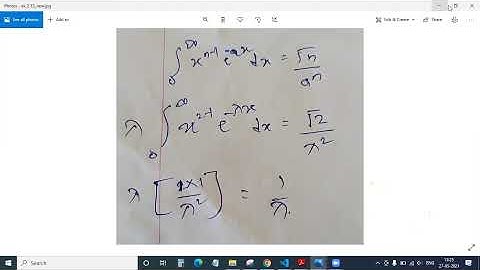 Photos - ex 2.11_new.jpg
See all photos + Add to
Edit & Create Share
∫₀^∞ x^{n-1} e^{-ax} dx = √n / a^n
λ ∫₀^∞ x^{2-1} e^{-λx} dx = √2 / λ²
λ [ 1×1 / λ² ] = 1 / λ.
ENG 13:25
27-05-2023